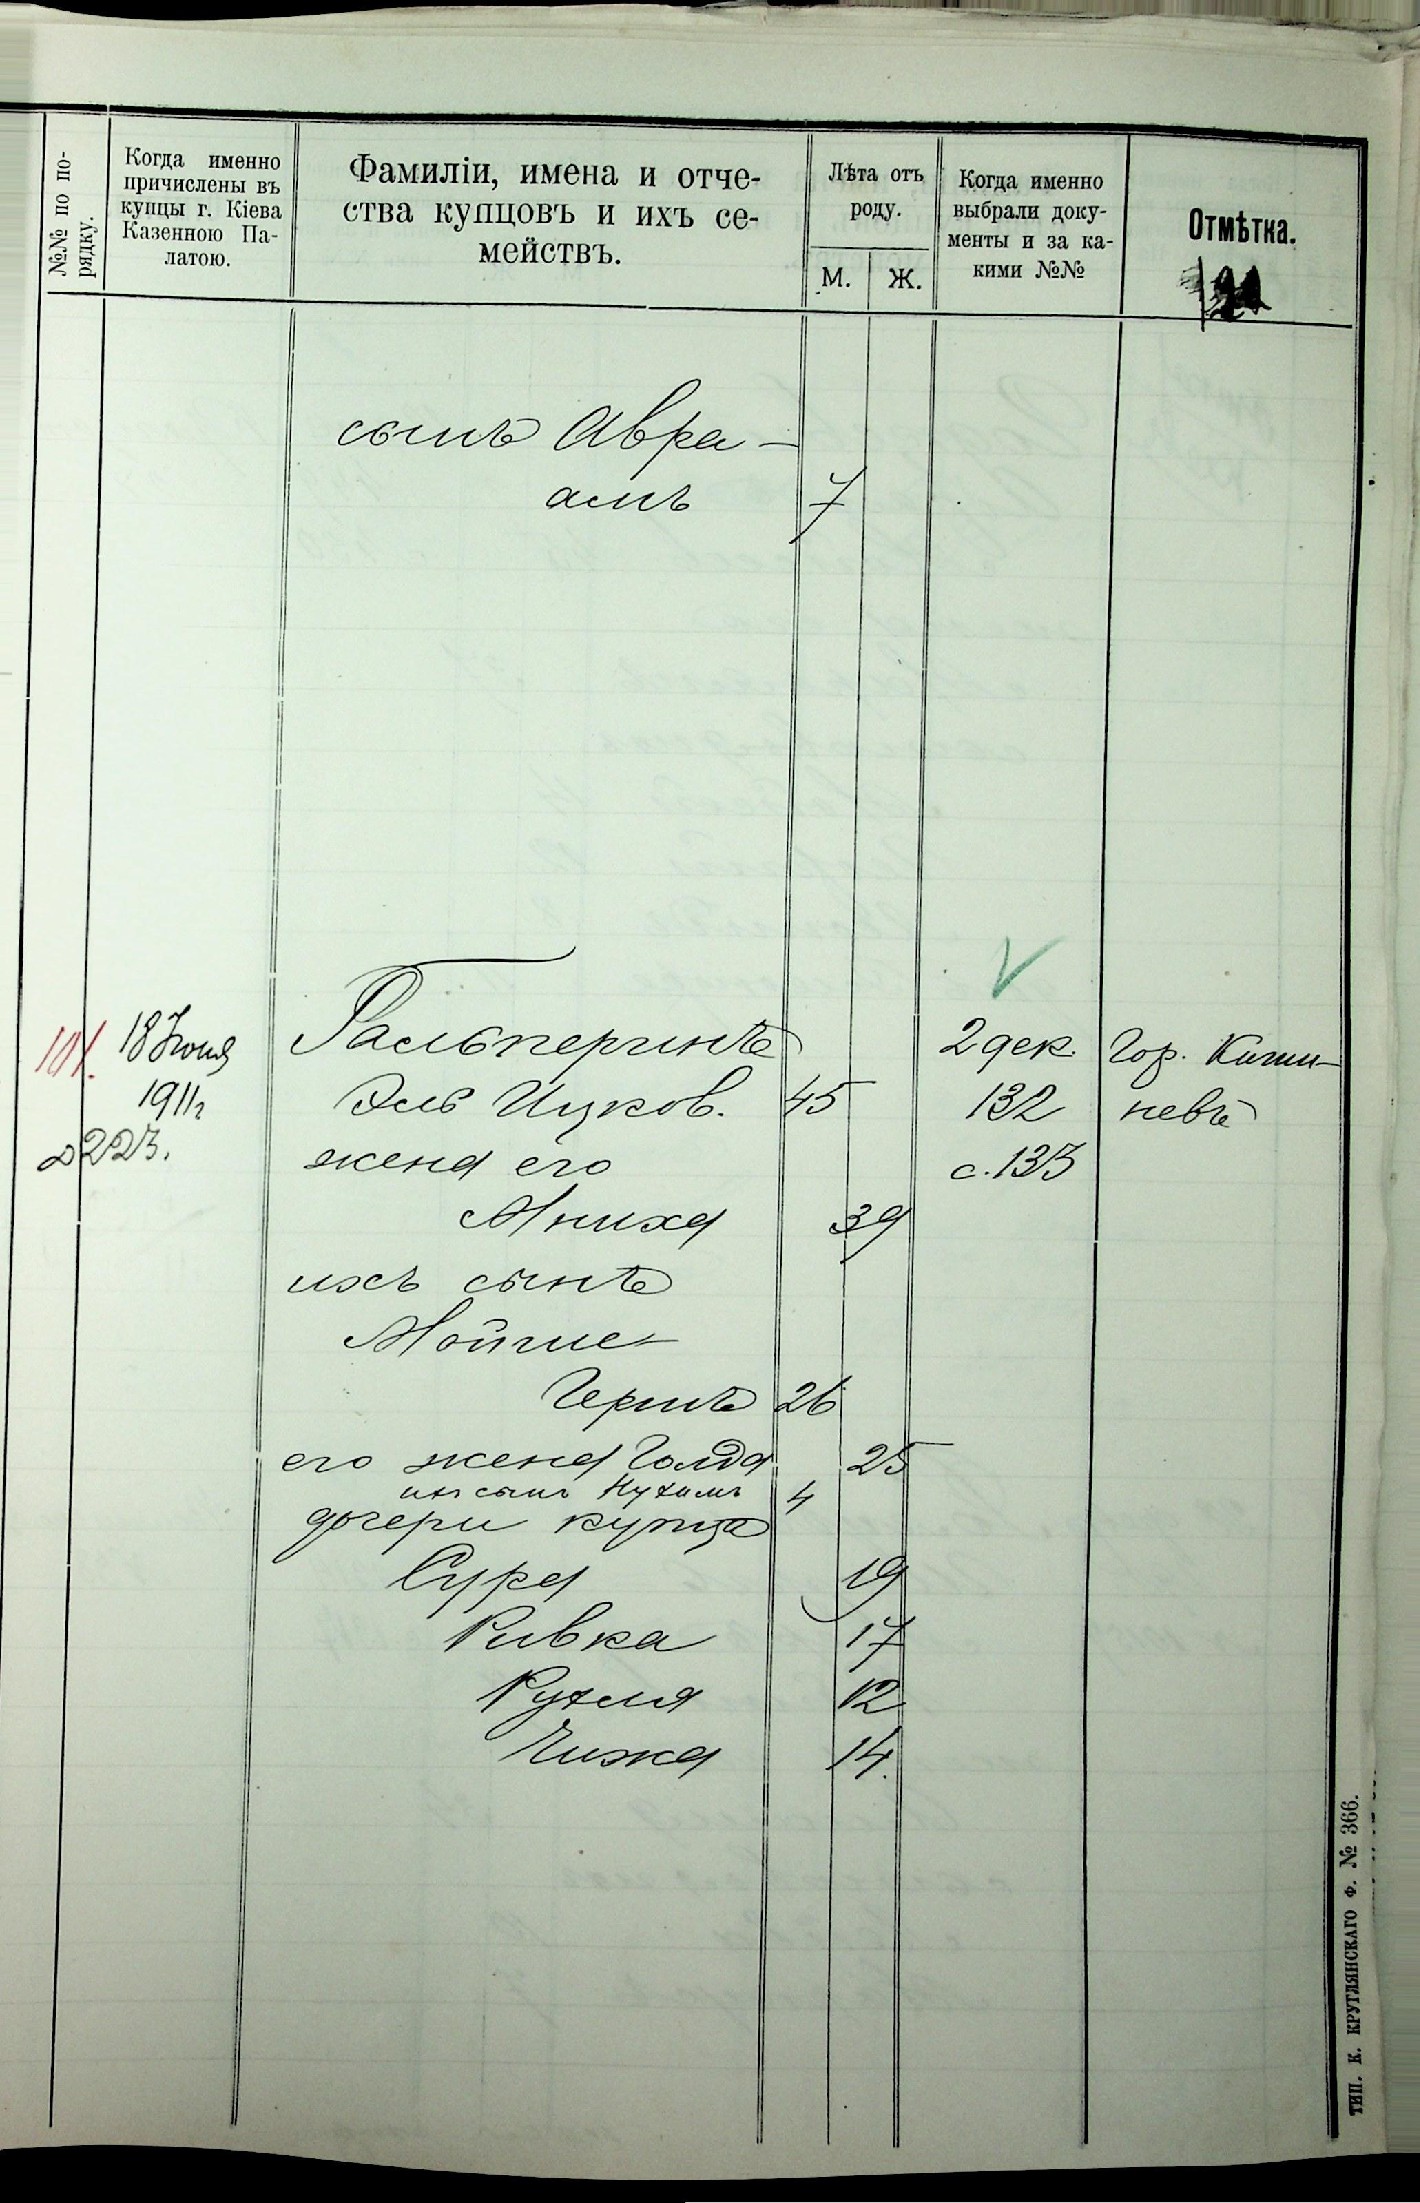 №№ по по-
рядку.
Когда именно
причислены въ
купцы г. Кіева
Казенною Па-
латою.
Фамиліи, имена и отче-
ства купцовъ и ихъ се-
мействъ.
Лѣта отъ
роду.
М.
Ж.
Когда именно
выбрали доку-
менты и за ка-
кими №№
Отмѣтка.
сынъ Авра-
амъ 7
101. 18 Іюня Гальперинъ 2 дек. Гор. Киши-
1911г Эль Ицков. 45 132 невъ
№223. жена его с.133
Мниха 39
ихъ сынъ
Мойше-
Гершъ 26
его жена Голда 25
ихъ сынъ Нухимъ 4
дочери купца
Сура 19
Ривка 17
Рухля 12
Чижа 14.
ТИП. К. КРУГЛЯНСКАГО Ф. № 366.